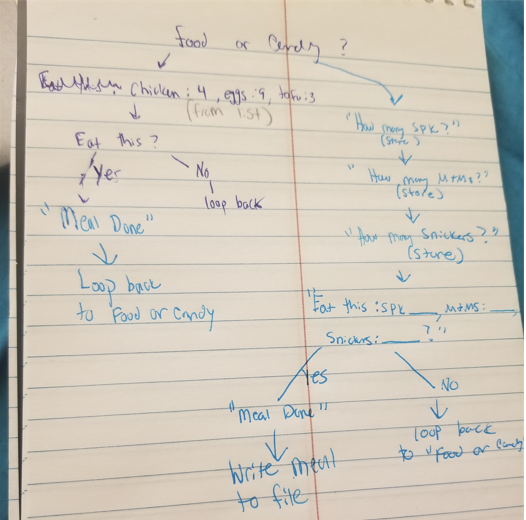 Food or Candy ?
Chicken : 4 , eggs : 9 , tofu : 3
(from list)
Eat this ?
Yes
No
loop back
"Meal Done"
Loop back
to Food or Candy
"How many SPK ?"
(Store)
"How many M+Ms ?"
(Store)
"How many Snickers ?"
(Store)
"Eat this : SPK ____, M+Ms : ____,
Snickers : ____ ?"
Yes
No
"Meal Done"
Write meal
to file
loop back
to "Food or Candy"